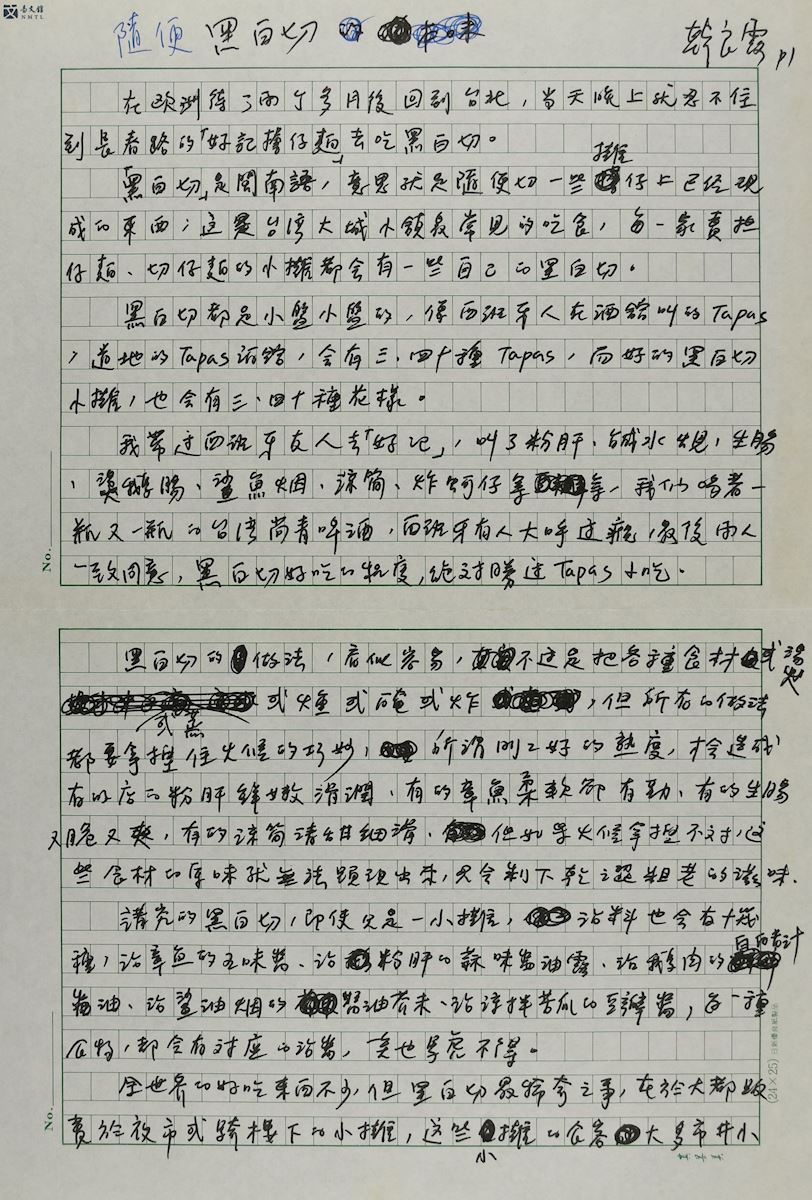 臺文館
NMTL
隨便 黑白切 的 味
韓良露 P1
在欧洲待了兩个多月後回到台北，当天晚上就忍不住
到長春路的「好記擔仔麵」去吃黑白切。
「黑白切」是閩南語，意思就是隨便切一些攤仔上已经现
成的東西，这是台湾大城小鎮最常見的吃食，每一家賣担
仔麵、切仔麵的小攤都会有一些自己的黑白切。
黑白切都是小盤小盤的，像西班牙人在酒館叫的Tapas
，道地的Tapas酒館，会有三、四十種Tapas，而好的黑白切
小攤，也会有三、四十種花樣。
我帶过西班牙友人去「好记」，叫了粉肝、鹹水蜆、生腸
、燙鵝腸、鯊魚烟、涼筍、炸蚵仔等等，我们喝著一
瓶又一瓶的台湾尚青啤酒，西班牙有人大呼过癮，最後两人
一致同意，黑白切好吃的程度，绝对勝过Tapas小吃。
No.
黑白切的做法，看似容易，不过是把各種食材或湯
或燙
或燻或滷或炸，但所有的做法
或蒸
都要拿捏住火候的巧妙，所謂刚刚好的熟度，才会造成
有的店的粉肝鮮嫩滑潤、有的章魚柔軟卻有勁、有的生腸
又脆又爽，有的涼筍清甜細滑，但如果火候拿捏不对，这
些食材的原味就無法顯现出來，只会剩下乾澀粗老的滋味。
講究的黑白切，即使只是一小攤，沾料也会有十幾
種，沾章魚的五味醬、沾粉肝的蒜味醬油露、沾鵝肉的
醬油、沾鯊油烟的醬油芥末、沾涼拌苦瓜的豆瓣醬，每一種
食物，都会有对应的沾醬，売也馬虎不得。
全世界的好吃東西不少，但黑白切最稀奇之事，在於大都販
賣於夜市或騎樓下的小攤，这些小攤的食客大多市井小
No.
(24×25)